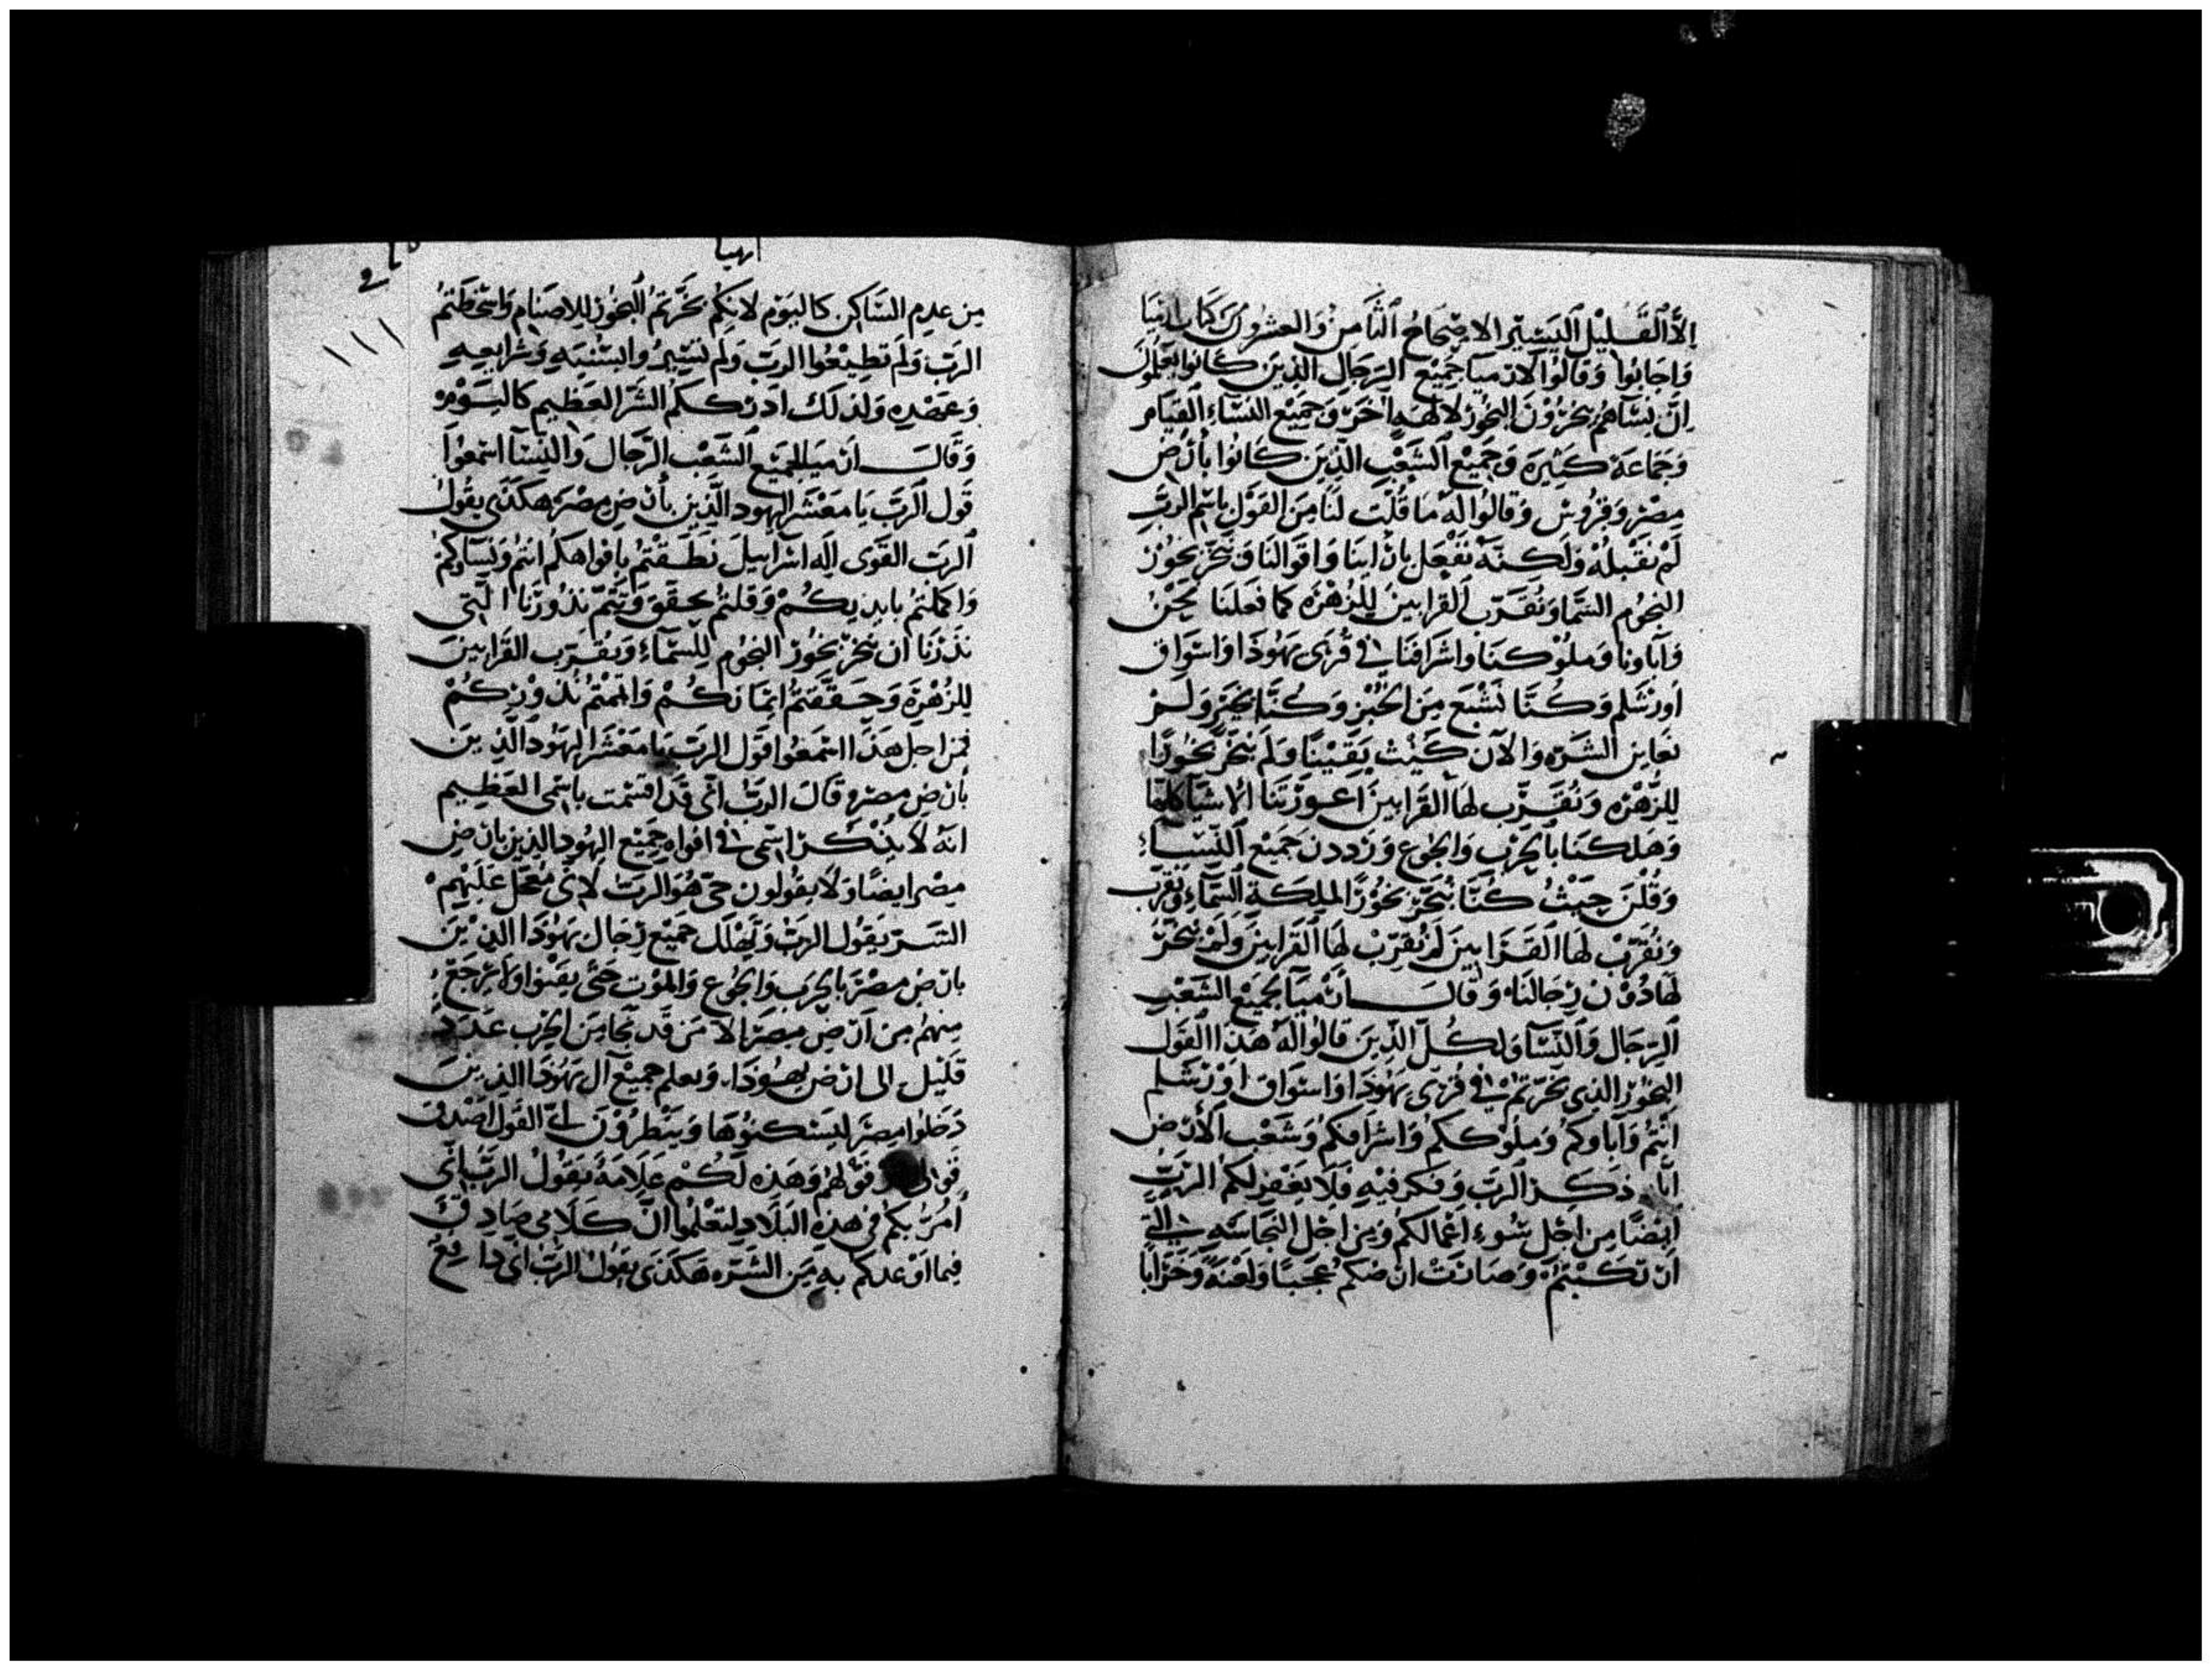 الا القليل اليسير الاصحاح الثامن والعشرون من كتاب ارميا
واجابوا وقالوا لارميا جميع الرجال الذين كانوا يعلمون
ان نساهم يبخرون البخور لالهه اخر وجميع النساء القيام
وجماعة كثيرة وجميع الشعب الذين كانوا بارض
مصر وفتروس وقالوا له ما قلت لنا من القول باسم الرب
لم نقبله ولكنه نفعل باراينا واقوالنا ونبخر بخور
النجوم السما ونقرب القرابين للزهره كما فعلنا نحن
وآباونا وملوكنا واشرافنا في قرى يهوذا واسواق
اورشلم وكنا نشبع من الخبز وكنا بخير ولم
نعاين الشره والآن كيث يقينا ولم نبخر بخورا
للزهره ونقرب لها القرابين اعوزتنا الاشيا كلها
وهلكنا بالحرب والجوع ورددن جميع النساء
وقلن حيث كنا نبخر بخورا لملكة السماء ونقرب
ونقرب لها القرابين لم نقرب لها القرابين ولم نبخر
لها دون رجالنا وقال ارميا لجميع الشعب
الرجال والنسآ ولكل الذين قالوا له هذا القول
البخور الذي بخرتم في قرى يهوذا واسواق اورشلم
انتم وآباوكم وملوككم واشرافكم وشعب الارض
اياه ذكر الرب وفكر فيه فلا يغفر لكم الرب
ايضا من اجل سوء اعمالكم ومن اجل النجاسه التي
ارتكبتم وصارت ارضكم عجبا ولعنة وخرابا
ارميا
من عدم الساكن كاليوم لانكم بخرتم البخور للاصنام واسخطتم
الرب ولم تطيعوا الرب ولم تسيروا بسننه وشرايعه
وعهده ولذلك ادرككم الشر العظيم كاليوم
وقال ارميا لجميع الشعب الرجال والنسآ اسمعوا
قول الرب يا معشر اليهود الذين بارض مصر هكذى يقول
الرب القوى اله اسراييل نطقتم بافواهكم انتم ونساوكم
واكملتم بايديكم وقلتم نحقق ونتم نذورنا التى
نذرنا ان نبخر بخور النجوم للسماء ونقرب القرابين
للزهرة وحققتم ايمانكم واتممتم نذوركم
فمن اجل هذا اسمعوا قول الرب يا معشر اليهود الذين
بارض مصر وقال الرب انى قد اقسمت باسمى العظيم
انه لا يذكر اسمى في افواه جميع اليهود الذين بارض
مصر ايضا ولا يقولون حى هو الرب لانى معجل عليهم
الشر يقول الرب ويهلك جميع رجال يهوذا الذين
بارض مصر بالحرب والجوع والموت حتى يفنوا ولا يرجع
منهم من ارض مصر الا من قد نجا من الحرب عدد
قليل الى ارض يهوذا ويعلم جميع آل يهوذا الذين
دخلوا مصر ليسكنوها وينظرون لى القول اصدق
قولى وقولهم وهذه لكم علامة يقول الرب انى
آمر بكم في هذه البلاد لتعلموا ان كلامى صادق
فيما اوعدكم به من الشره هكذى يقول الرب انى دافع